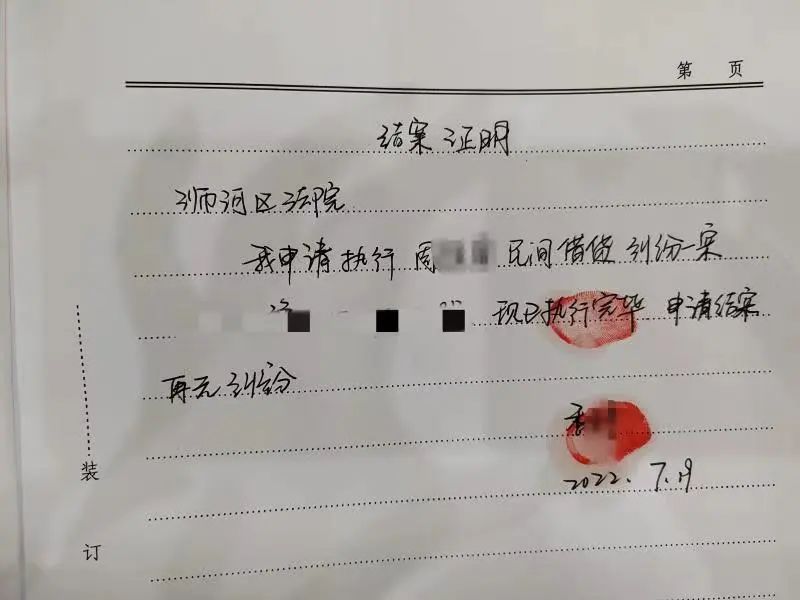 第 页
结案证明
浉河区法院
我申请执行周 民间借贷纠纷一案
现已执行完毕 申请结案
再无纠纷
2022.7.19
装
订